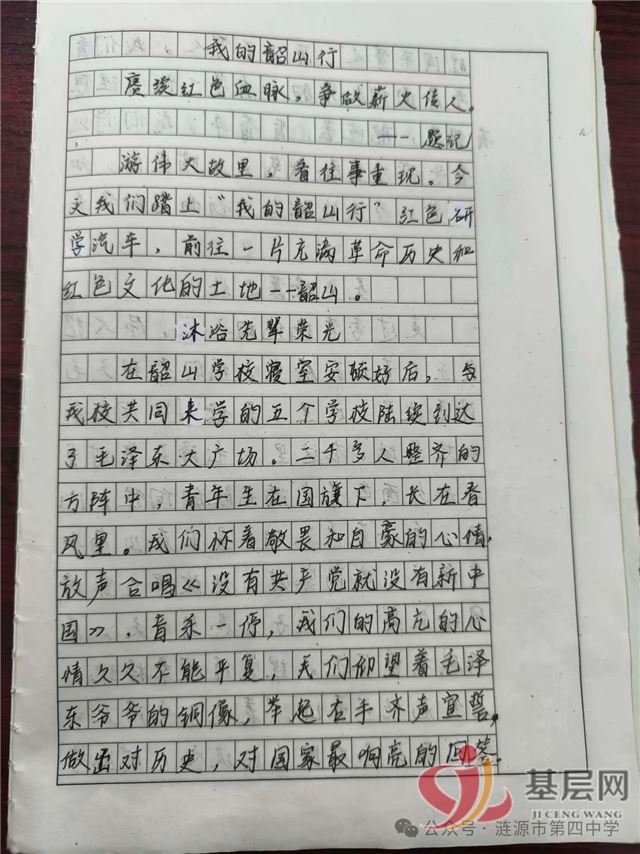 我的韶山行
赓续红色血脉，争做薪火传人。
——题记
游伟大故里，看往事重现。今
天我们踏上“我的韶山行”红色研
学汽车，前往一片充满革命历史和
红色文化的土地——韶山。
沐浴先辈荣光
在韶山学校寝室安顿好后，与
我校共同来学的五个学校陆续到达
了毛泽东大广场。二千多人整齐的
方阵中，青年生在国旗下，长在春
风里。我们怀着敬畏和自豪的心情，
放声合唱《没有共产党就没有新中
国》，音乐一停，我们的高亢的心
情久久不能平复，我们仰望着毛泽
东爷爷的铜像，举起右手齐声宣誓，
做出对历史，对国家最响亮的回答。
基层网
JI CENG WANG
公众号·涟源市第四中学